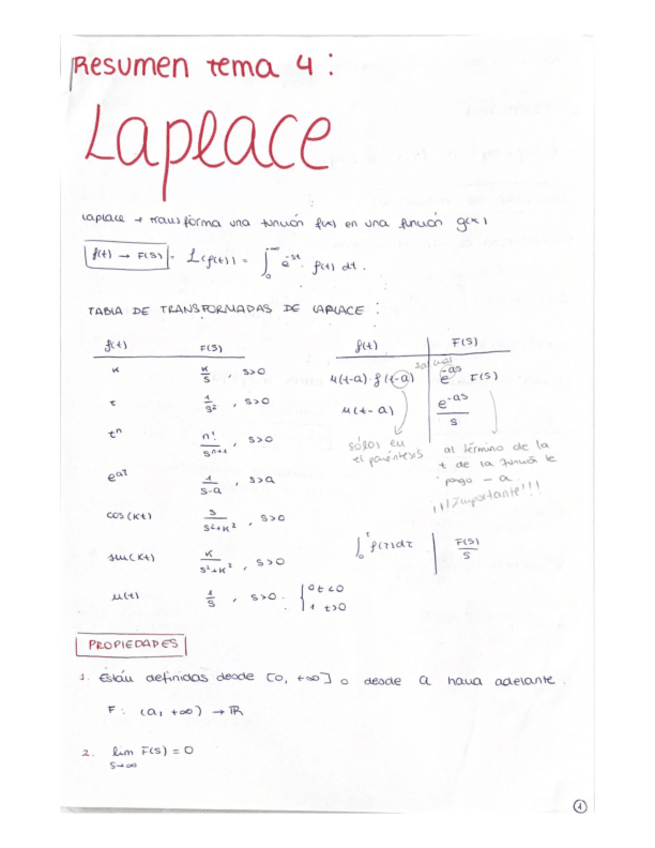 Resumen tema 4 :
Laplace
Laplace → transforma una función f(x) en una función g(x)
f(t) → F(s) = L(f(t)) = ∫₀^∞ e^-st · f(t) dt.
TABLA DE TRANSFORMADAS DE LAPLACE :
f(t) F(s)
K K/s , s>0
t 1/s² , s>0
tⁿ n!/sⁿ⁺¹ , s>0
e^at 1/s-a , s>a
cos(Kt) s/s²+K² , s>0
sin(Kt) K/s²+K² , s>0
u(t) 1/s , s>0. { 0 t<0
1 t>0
f(t) F(s)
u(t-a) · f(t-a) e^-as F(s)
u(t-a) e^-as/s
sólos en
el paréntesis
al término de la
t de la función le
pago - a.
¡¡¡Importante!!!
∫₀^t f(τ)dτ F(s)/s
PROPIEDADES
1. Están definidas desde [0, +∞] o desde a hacia adelante.
F : (a, +∞) → ℝ
2. lim F(s) = 0
s→∞
1